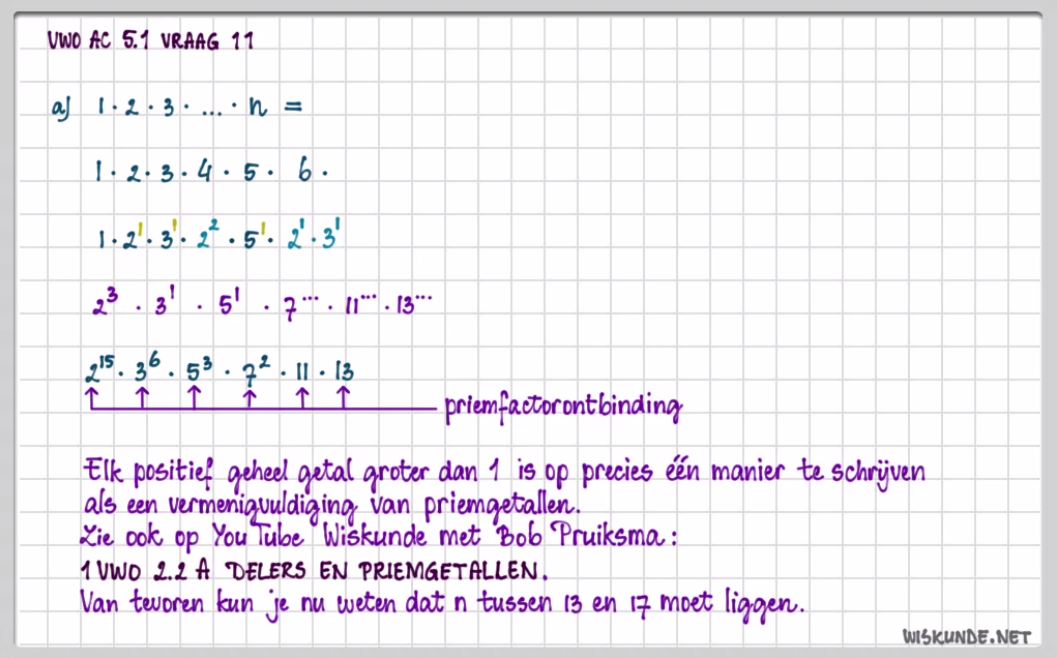 VWO AC 5.1 VRAAG 11
a) 1 · 2 · 3 · ... · n =
1 · 2 · 3 · 4 · 5 · 6 ·
1 · 2¹ · 3¹ · 2² · 5¹ · 2¹ · 3¹
2³ · 3¹ · 5¹ · 7^... · 11^... · 13^...
2¹⁵ · 3⁶ · 5³ · 7² · 11 · 13
priemfactorontbinding
Elk positief geheel getal groter dan 1 is op precies één manier te schrijven
als een vermenigvuldiging van priemgetallen.
Zie ook op YouTube Wiskunde met Bob Pruiksma:
1 VWO 2.2 A DELERS EN PRIEMGETALLEN.
Van tevoren kun je nu weten dat n tussen 13 en 17 moet liggen.
WISKUNDE.NET